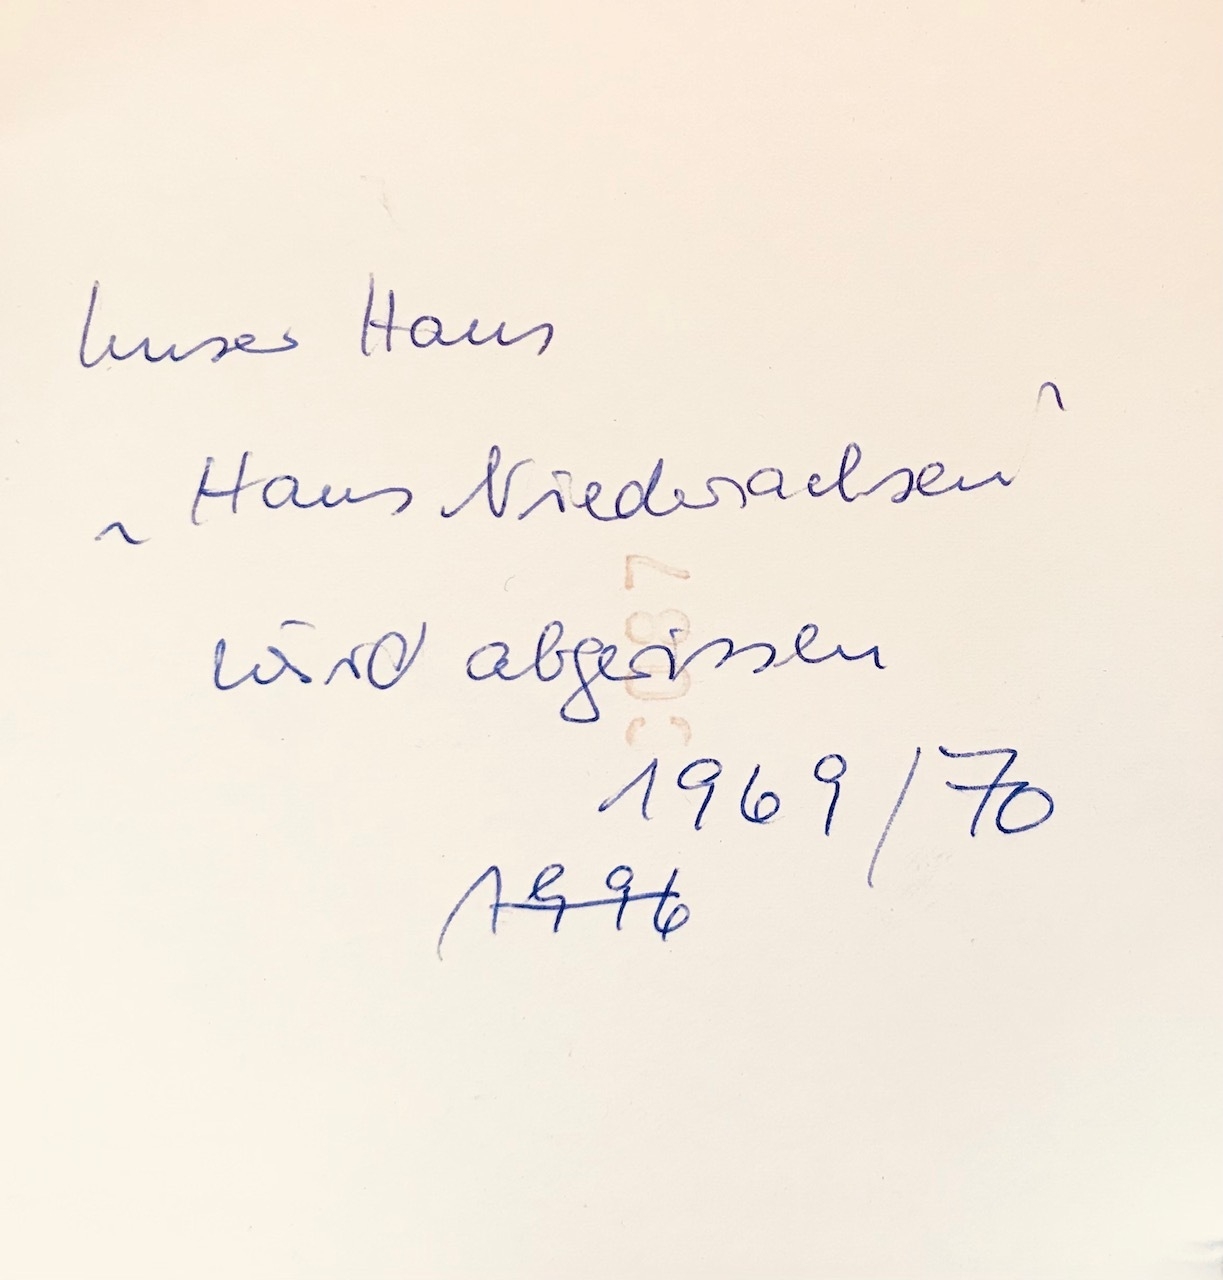 Unser Haus
„Haus Niedersachsen"
wird abgerissen
1969/70
1996